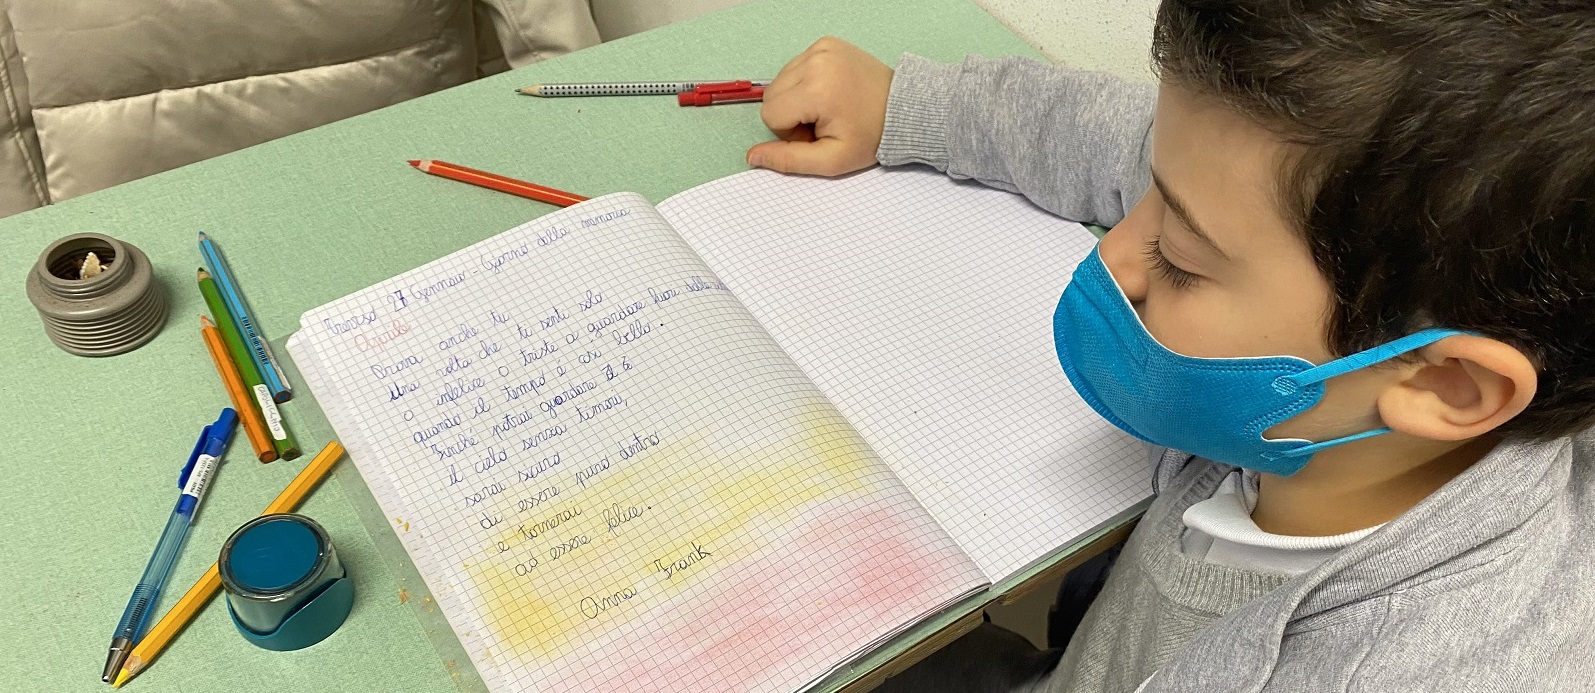 Treviso 27 Gennaio - Giorno della memoria
Aprile
Prova anche tu
Una volta che ti senti solo
o infelice o triste a guardare fuori dalla
quando il tempo é così bello.
Finché potrai guardare il
il cielo senza timori,
sarai sicuro
di essere puro dentro
e tornerai
ad essere felice.
Anna Frank